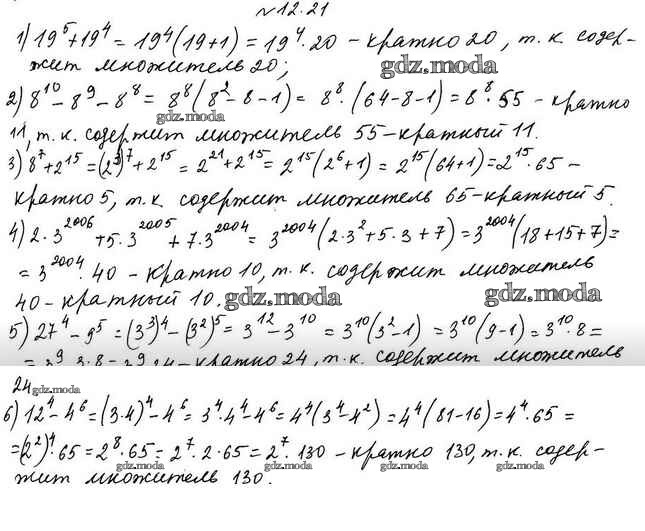 №12.21
1) 19⁵+19⁴ = 19⁴(19+1) = 19⁴·20 – кратно 20, т.к. содер-
жит множитель 20; gdz.moda
2) 8¹⁰ – 8⁹ – 8⁸ = 8⁸(8² – 8 – 1) = 8⁸·(64–8–1) = 8⁸·55 – кратно
gdz.moda
11, т.к. содержит множитель 55 – кратный 11.
3) 8⁷+2¹⁵ = (2³)⁷+2¹⁵ = 2²¹+2¹⁵ = 2¹⁵(2⁶+1) = 2¹⁵(64+1) = 2¹⁵·65 –
кратно 5, т.к. содержит множитель 65 – кратный 5.
4) 2·3²⁰⁰⁶ + 5·3²⁰⁰⁵ + 7·3²⁰⁰⁴ = 3²⁰⁰⁴(2·3²+5·3+7) = 3²⁰⁰⁴(18+15+7) =
= 3²⁰⁰⁴·40 – кратно 10, т.к. содержит множитель
40 – кратный 10. gdz.moda gdz.moda
5) 27⁴ – 9⁵ = (3³)⁴ – (3²)⁵ = 3¹² – 3¹⁰ = 3¹⁰(3²–1) = 3¹⁰(9–1) = 3¹⁰·8 =
= 3⁹·3·8 = 3⁹·24 – кратно 24, т.к. содержит множитель
24 gdz.moda
6) 12⁴ – 4⁶ = (3·4)⁴ – 4⁶ = 3⁴·4⁴ – 4⁶ = 4⁴(3⁴–4²) = 4⁴(81–16) = 4⁴·65 =
= (2²)⁴·65 = 2⁸·65 = 2⁷·2·65 = 2⁷·130 – кратно 130, т.к. содер-
gdz.moda gdz.moda gdz.moda gdz.moda
жит множитель 130.